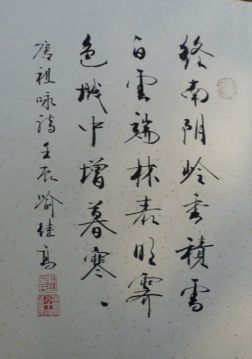 終南阴岭秀積雪
白雲端林表明霽
色城中增暮寒
唐祖咏詩壬辰喻佳